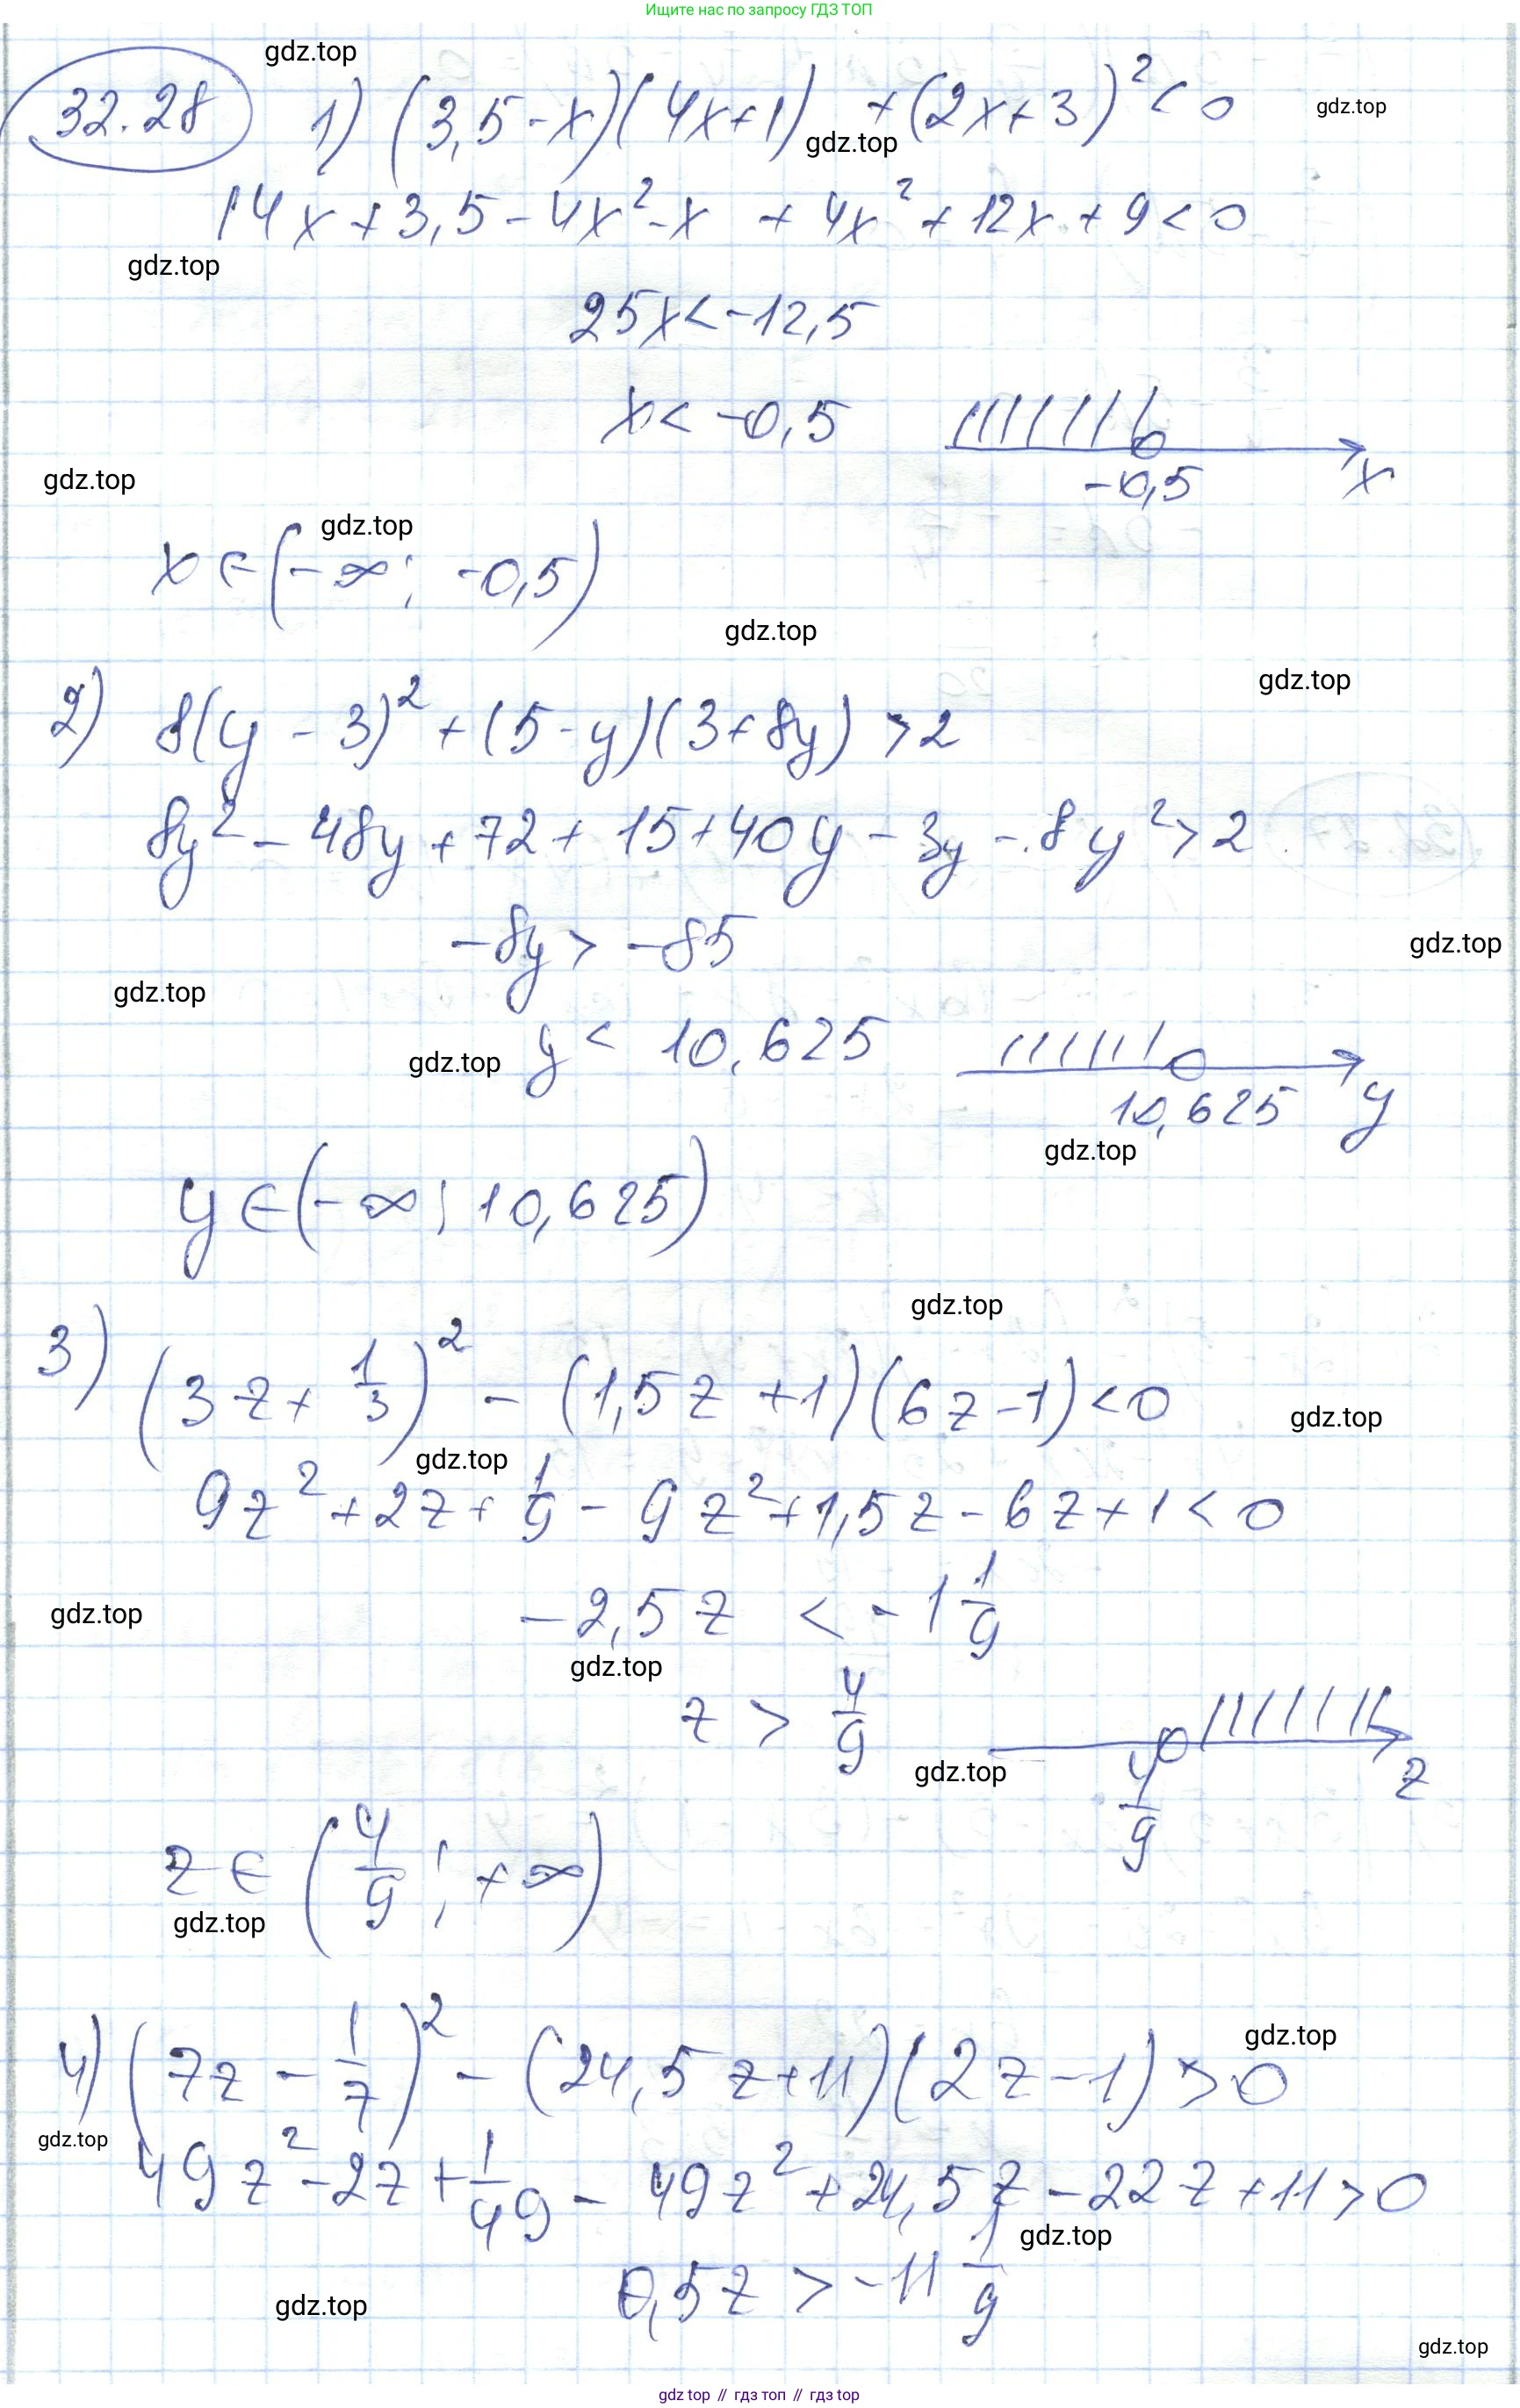 Ищите нас по запросу ГДЗ ТОП
gdz.top
32.28 1) (3,5-x)(4x+1) + (2x+3)² < 0
gdz.top
gdz.top
14x + 3,5 - 4x² - x + 4x² + 12x + 9 < 0
gdz.top
25x < -12,5
x < -0,5
-0,5 x
gdz.top
gdz.top
x ∈ (-∞; -0,5)
gdz.top
gdz.top
2) 8(y - 3)² + (5-y)(3+8y) > 2
8y² - 48y + 72 + 15 + 40y - 3y - 8y² > 2
-8y > -85
gdz.top
gdz.top
y < 10,625
gdz.top
10,625 y
gdz.top
y ∈ (-∞; 10,625)
gdz.top
3) (3z + 1/3)² - (1,5z + 1)(6z - 1) < 0
gdz.top
gdz.top
9z² + 2z + 1/9 - 9z² + 1,5z - 6z + 1 < 0
-2,5z < -1 1/9
gdz.top
gdz.top
z > 4/9
gdz.top
4/9 z
z ∈ (4/9; +∞)
gdz.top
4) (7z - 1/7)² - (24,5z + 11)(2z - 1) > 0
gdz.top
gdz.top
49z² - 2z + 1/49 - 49z² + 24,5z - 22z + 11 > 0
gdz.top
0,5z > -11 1/9
gdz.top
gdz.top
gdz top // гдз топ // гдз top